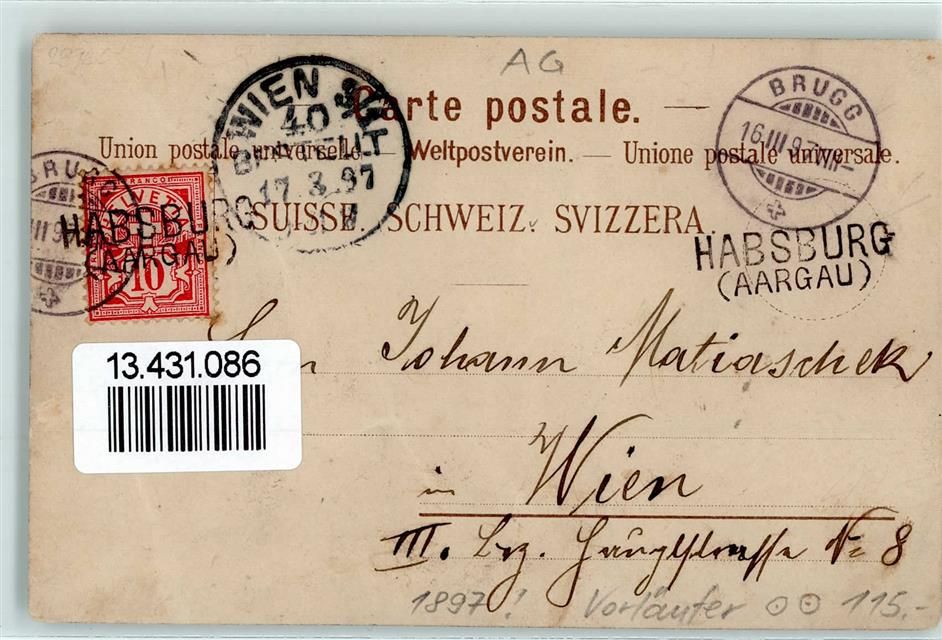 AG
WIEN
40
17.3.97
Carte postale.
Union postale universelle. — Weltpostverein. — Unione postale universale.
BRUGG
16.III.97
SUISSE. SCHWEIZ. SVIZZERA.
BRUGG
FRANCO
HELVETIA
10
HABSBURG
(AARGAU)
HABSBURG
(AARGAU)
Johann Matiaschek
13.431.086
in Wien
III. Bez. Hauptstrasse No 8
1897! Vorläufer 115.-